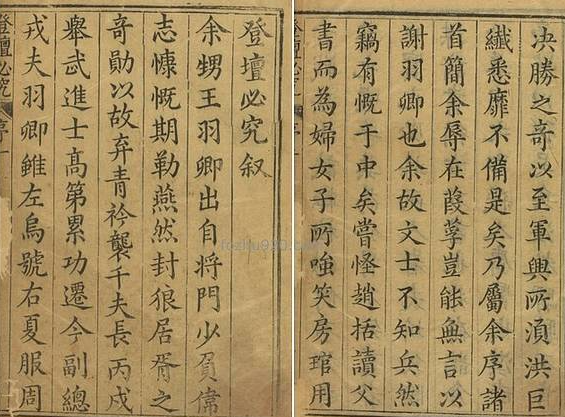 登壇必究叙
余甥王羽卿出自將門少負偉
志慷慨期勒燕然封狼居胥之
奇勛以故弃青衿襲千夫長丙戌
舉武進士高第累功遷今副總
戎夫羽卿雖左烏號右夏服周
登壇必究 序 一
决勝之奇以至軍興所須洪巨
纖悉靡不備是矣乃屬余序諸
首簡余辱在葭莩豈能無言以
謝羽卿也余故文士不知兵然
竊有慨于中矣嘗怪趙括讀父
書而為婦女子所嗤笑房琯用